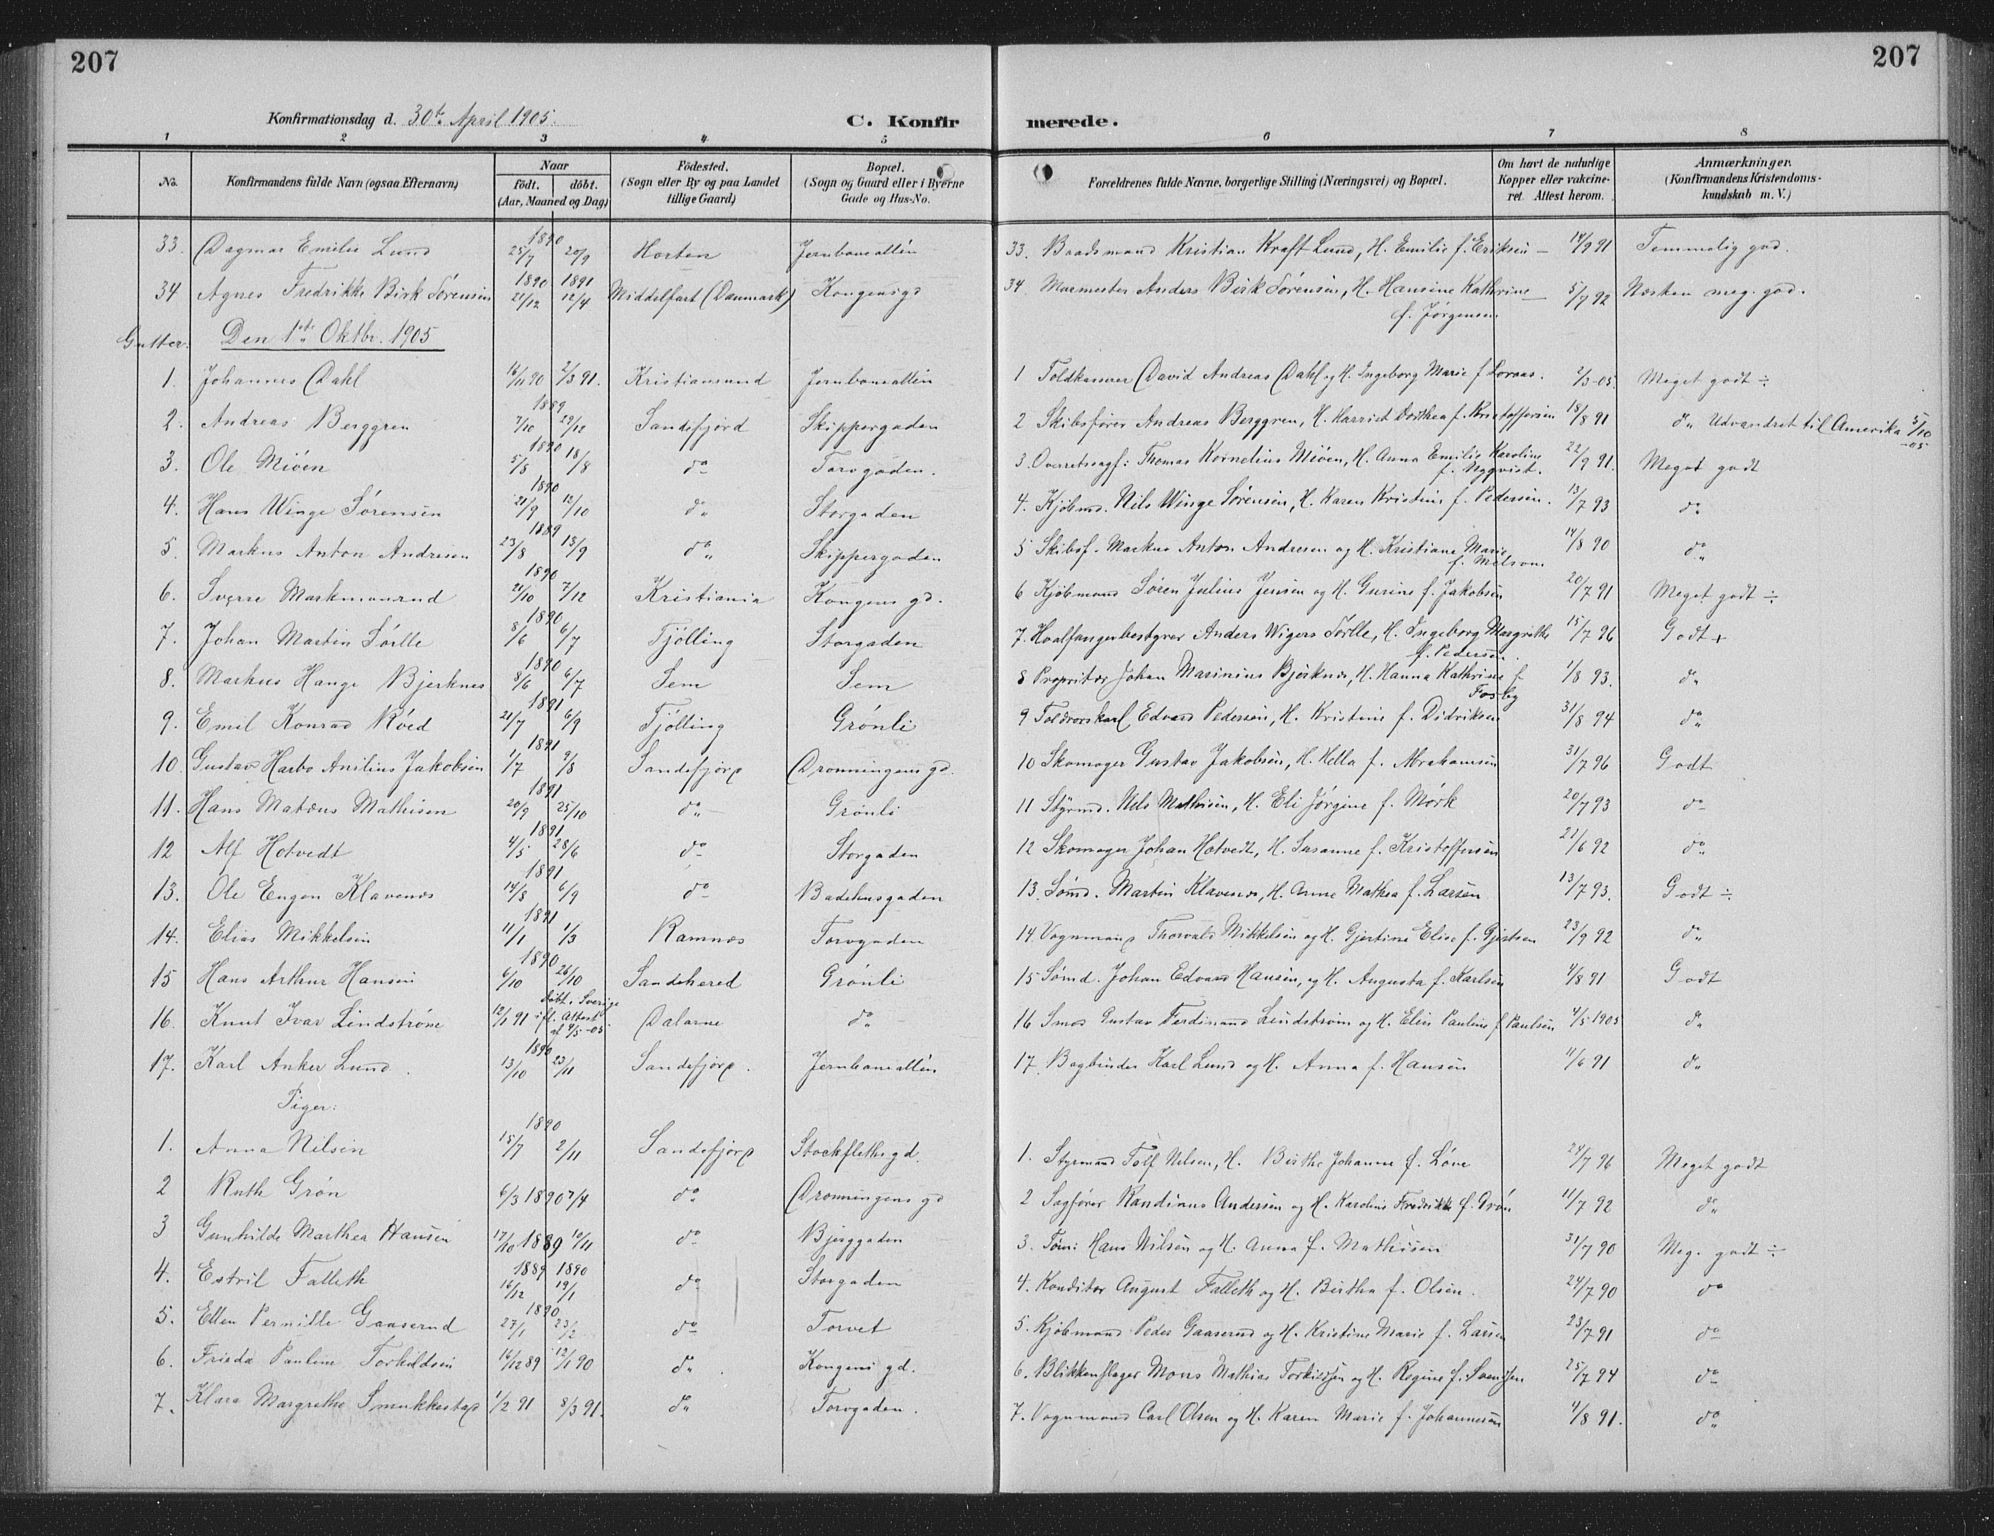 207
207
Konfirmationsdag d. 30te April 1905.
C. Konfirmerede.
1 2 3 4 5 6 7 8
No. Konfirmandens fulde Navn (ogsaa Efternavn) Naar født. døbt. (Aar, Maaned og Dag) Födested. (Sogn eller By og paa Landet tillige Gaard) Bopæl. (Sogn og Gaard eller i Byerne Gade og Hus-No. Forældrenes fulde Navne, borgerlige Stilling (Næringsvei) og Bopæl. Om havt de naturlige Kopper eller vakcineret. Attest herom. Anmærkninger. (Konfirmandens Kristendomskundskab m. V.)
33. Dagmar Emilie Lund 1890 25/7 20/9 Horten Jernbanealléen 33. Baadsmand Kristian Kraft Lund, H. Emilie f. Eriksen 14/9 91 Temmelig god.
34 Agnes Fredrikke Birk Sørensen 1890 21/12 1891 12/4 Middelfart (Danmark) Kongensgd 34. Murmester Anders Birk Sörensen, H. Hansine Kathrine f. Jörgensen 5/7 92 Næsten meg. god.
Gutter. Den 1ste Oktbr. 1905
1. Johannes Dahl 16/11 90 2/3 91. Kristiansund Jernbanealléen 1 Toldkasserer David Andreas Dahl og H. Ingeborg Marie f. 2/3-05. Meget godt ÷
2. Andreas Berggren 1889 7/10 29/12 Sandefjord Skippergaden 2 Skibsfører Andreas Berggren, H. Harriet Dorthea f. Kristoffersen 18/8 91 do Udvandret til Amerika 5/10-05
3. Ole Miöen 1890 5/8 18/8 do Torvgaden. 3. Overretssagf: Thomas Kornelius Miöen, H. Anna Emilie Karoline f. Nyqvist. 22/9 91. Meget godt
4. Hans Winge Sörensen 1890 21/9 12/10 do Storgaden 4. Kjöbmd. Nils Winge Sörensen, H. Karen Kristine f. Pedersen. 13/7 93 do
5. Markus Anton Andresen 1889 23/8 15/9 do Skippergaden 5 Skibsf. Markus Anton Andresen og H. Kristiane Marie f. Melsom 14/8 90 do
6. Sverre Markmanrud 1890 21/10 7/12 Kristiania Kongens gd. 6 Kjöbmand Sören Julius Jensen og H. Gurine f. Jakobsen 20/7 91 Meget godt ÷
7. Johan Martin Sörlle 1890 8/6 6/7 Tjölling Storgaden 7. Hvalfangerbestyrer Anders Wigers Sörlle, H. Ingeborg Margrethe f. Pedersen. 15/7 96 Godt +
8. Markus Hauge Bjerknes 1890 8/6 6/7 Sem Sem 8 Propritær Johan Marinius Bjerknes, H. Hanna Kathrine f Fosby 1/8 93. do
9. Emil Konrad Röed 1891 21/7 6/9 Tjölling Grönli 9 Toldrorskarl Edvard Pedersen, H. Kristine f. Didriksen 31/8 94 do
10. Gustav Harbo Anilius Jakobsen 1891 1/7 9/8 Sandefjord Dronningens gd. 10 Skomager Gustav Jakobsen, H. Hella f. Abrahamsen 31/7 96 Godt
11. Hans Matæus Mathisen 1891 20/9 25/10 do Grönli 11 Styrmd. Nils Mathisen, H. Eli Jörgine f. Mörk 20/7 93 do
12 Alf Hotvedt 1891 4/5 28/6 do Storgaden 12 Skomager Johan Hotvedt, H. Susanne f. Kristoffersen 21/6 92 do
13. Ole Eugen Klavenæs 1891 14/8 6/9 do Badehusgaden 13. Sömd. Martin Klavenæs, H. Anne Mathea f. Larsen 13/7 93. Godt ÷
14. Elias Mikkelsen 1891 11/1 1/3 Ramnæs Torvgaden 14. Vognmand Thorvald Mikkelsen og H. Gjertine Elise f. Gjertsen 23/9 92 do
15 Hans Arthur Hansen 1890 6/10 26/10 Sandehered Grönli 15 Sömd. Johan Edvard Hansen, og H. Augusta f. Karlsen 4/8 91 Godt
16. Knut Ivar Lindström 12/1 91 døbt i Sverige ifl. Attest af 4/5-05. Dalarne do 16 Smed Gustav Ferdinand Lindström og H. Elin Pauline f Paulsen 4/5-1905 do
17. Karl Anker Lund 1890 13/10 23/11 Sandefjord. Jernbanealléen 17. Bogbinder Karl Lund og H. Anna f. Hansen 11/6 91 do
Piger:
1. Anna Nilsen 1890 15/7 2/11 Sandefjord Stockfleths gd. 1. Styrmand Tolf Nilsen, H. Birthe Johanne f. Löve 24/7 96 Meget godt
2 Ruth Grön 6/3 1890 7/4 do Dronningens gd 2 Sagförer Randinus Andersen og H. Karoline Fredrikke f. Grön 11/7 92 do
3 Gunhilde Marthea Hansen 17/10 1889 10/11 do Bjerggaden 3. Töm: Hans Nilsen og H. Anna f. Mathisen 31/7 90 Meg. godt ÷
4. Estril Falleth 1889 16/12 1890 19/1 do Storgaden 4. Konditor August Falleth og H. Birtha f. Olsen. 24/7 90 do
5. Ellen Pernille Gaaserud 1890 27/1 23/2 do Torvet 5. Kjöbmand Peder Gaaserud og H. Kristine Marie f. Larsen 23/7 91 do
6. Frieda Pauline Torkildsen 16/12 89 12/1 90 do Kongens gd. 6. Blikkenslager Mons Mathias Torkildsen og H. Regine f. Svendsen 25/7 94 do
7. Klara Margrethe Smukkestad 1/2 91 8/3 91. do Torvgaden. 7. Vognmand Carl Olsen og H. Karen Marie f. Johannesen 4/8 91. do